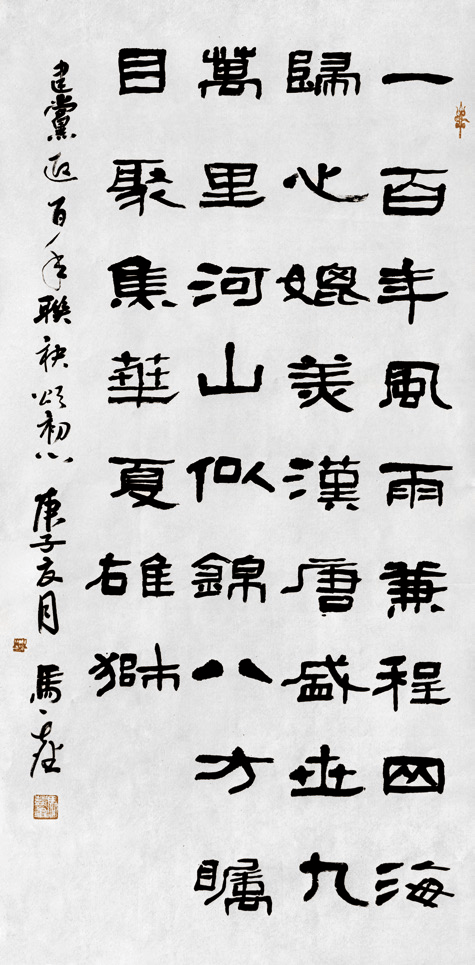 一百年風雨兼程四海
歸心媲美漢唐盛世九
萬里河山似錦八方矚
目聚焦華夏雄獅
建黨迎百年聯袂頌初心 庚子亥月 馬